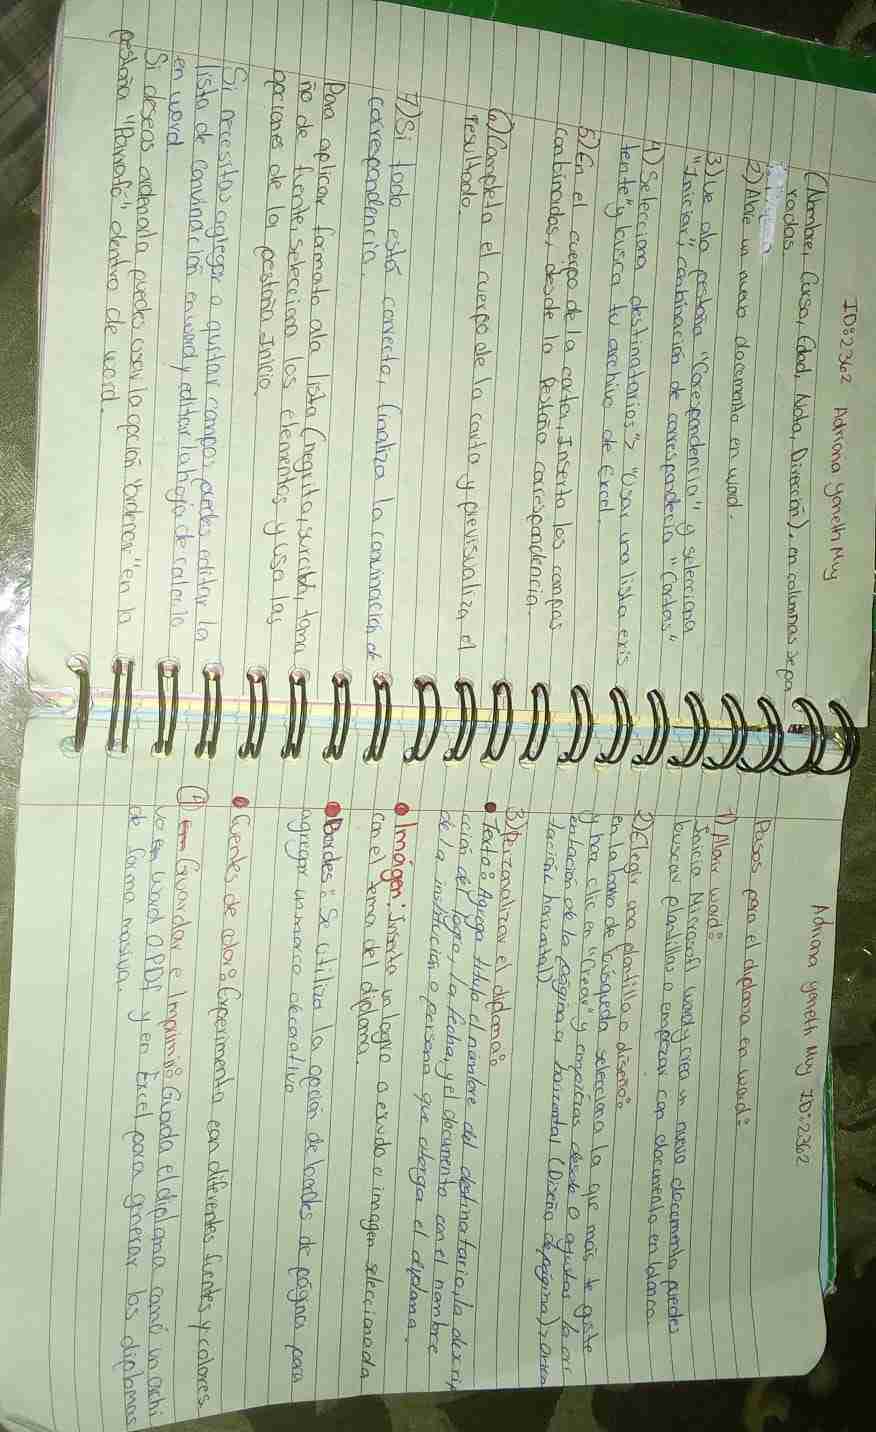 ID:2362 Adriana yaneth Muy
(Nombre, Curso, Edad, Nota, Dirección), en columnas sepa
radas.
2) Abre un nuevo documento en word.
3) Ve ala pestaña "Corespondencia" y selecciona
"Iniciar", combinación de correspondecia "Cartas"
4) Selecciona destinatarios "> "Usar una lista exis
tente" y busca tu archivo de Excel.
5) En el cuerpo de la carta, Inserta los campos
combinados, desde la Pestaña correspondencia.
6) Completa el cuerpo de la carta y previsualiza el
resultado.
7) Si todo está correcto, finaliza la convinación de
correspondencia.
Para aplicar formato ala lista (negrita, cursiba, tama
ño de fuente, selecciona los elementos y usa las
opciones de la pestaña Inicio.
Si necesitas agregar o quitar campos, puedes editar la
lista de convinación en word y editar la hoja de calculo
en word
Si deseas ordenarla puedes usar la opción "Ordenar" en la
pestaña "Parrafo" dentro de word.
Adriana yaneth Muy ID:2362
Pasos para el diploma en word:
1) Abrir word:
Inicia Microsoft word y crea un nuevo documento, puedes
buscar plantillas o empezar con documento en blanco.
2) Elegir una plantilla o diseño:
en la barra de búsqueda selecciona la que más te guste
y haz clic en "Crear" y empiezas desde 0 ajustas la ori
entación de la página a horizontal (Diseño de página) > orien
tación horizontal)
3) Personalizar el diploma:
• Texto: Agrega título el nombre del destinatario, la descrip
cción del logro, la fecha, y el documento con el nombre
de la institución o persona que otorga el diploma.
• Imágen: Inserta un logro o escudo o imagen seleccionada
con el tema del diploma.
• Bordes: Se utiliza la opción de bordes de página para
agregar un marco decorativo
• fuentes de color: Experimenta con diferentes fuentes y colores.
4) Guardar e Imprimir: Guarda el diploma como un archi
vo en word o PDF y en Excel para generar los diplomas
de forma masiva.